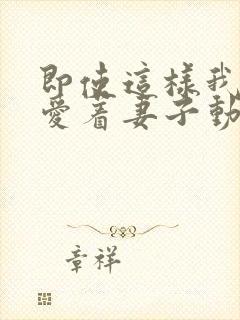 即使這樣我
愛着妻子動
章祥